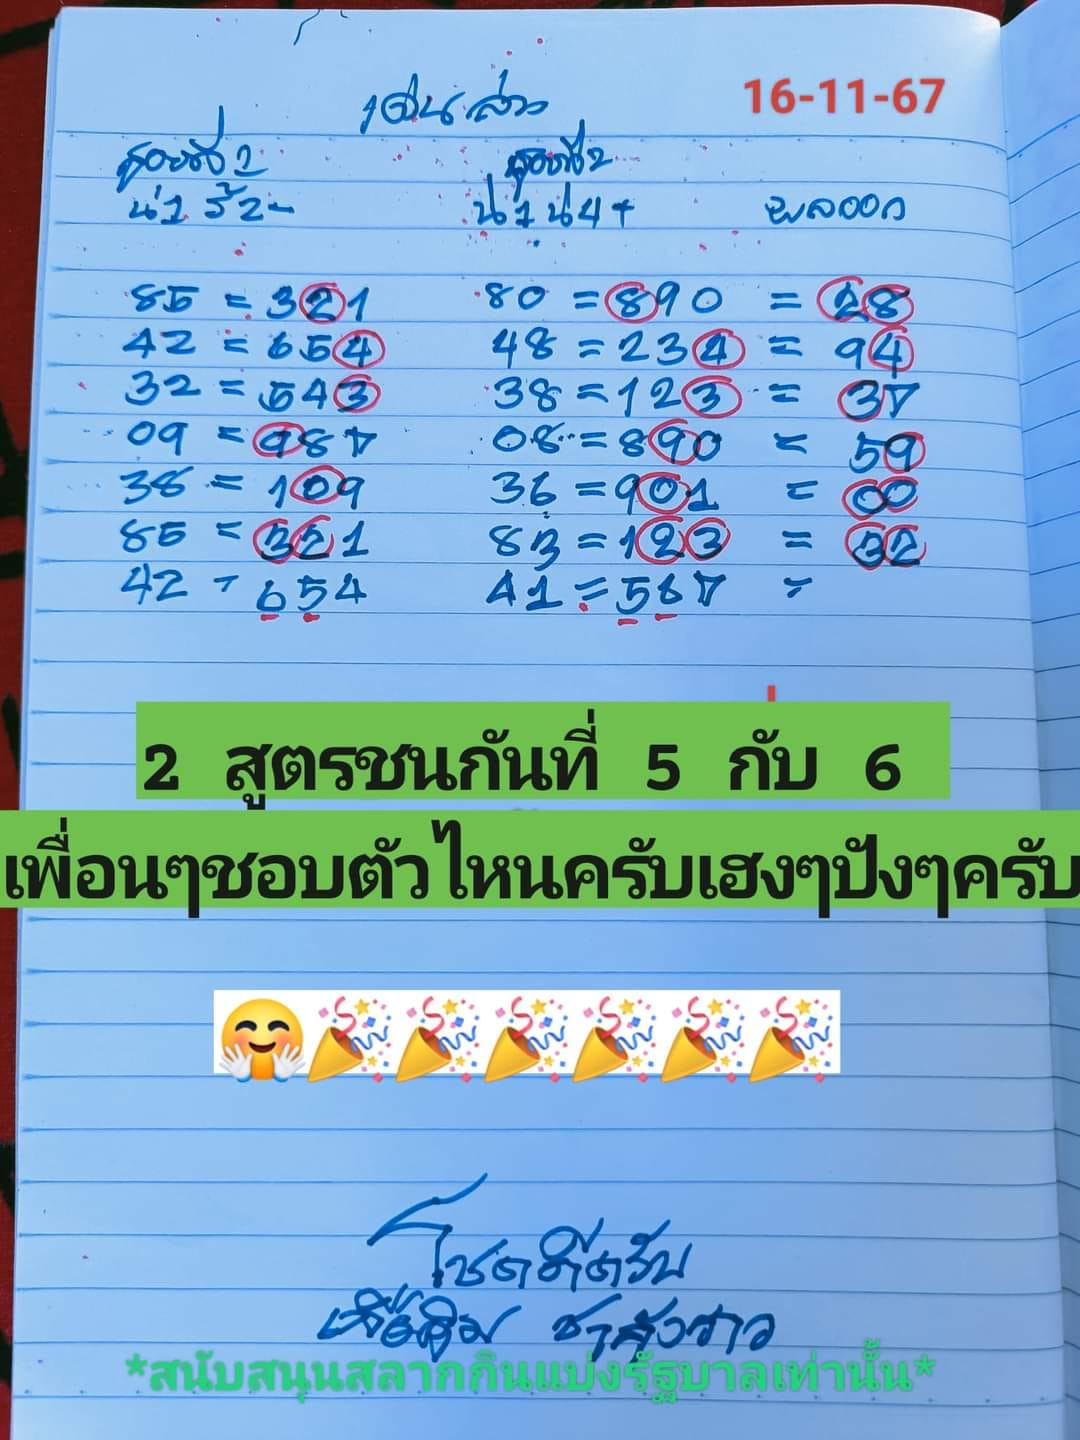 เด่นล่าง 16-11-67
สูตรที่ 1 สูตรที่ 2
น่1 ร้2- น่1 น่4+ ผลออก
85 = 321 80 = 890 = 28
42 = 654 48 = 234 = 94
32 = 543 38 = 123 = 37
09 = 987 08 = 890 = 59
38 = 109 36 = 901 = 00
85 = 321 83 = 123 = 32
42 = 654 41 = 567 =
2 สูตรชนกันที่ 5 กับ 6
เพื่อนๆชอบตัวไหนครับเฮงๆปังๆครับ
โชคดีครับ
*สนับสนุนสลากกินแบ่งรัฐบาลเท่านั้น*